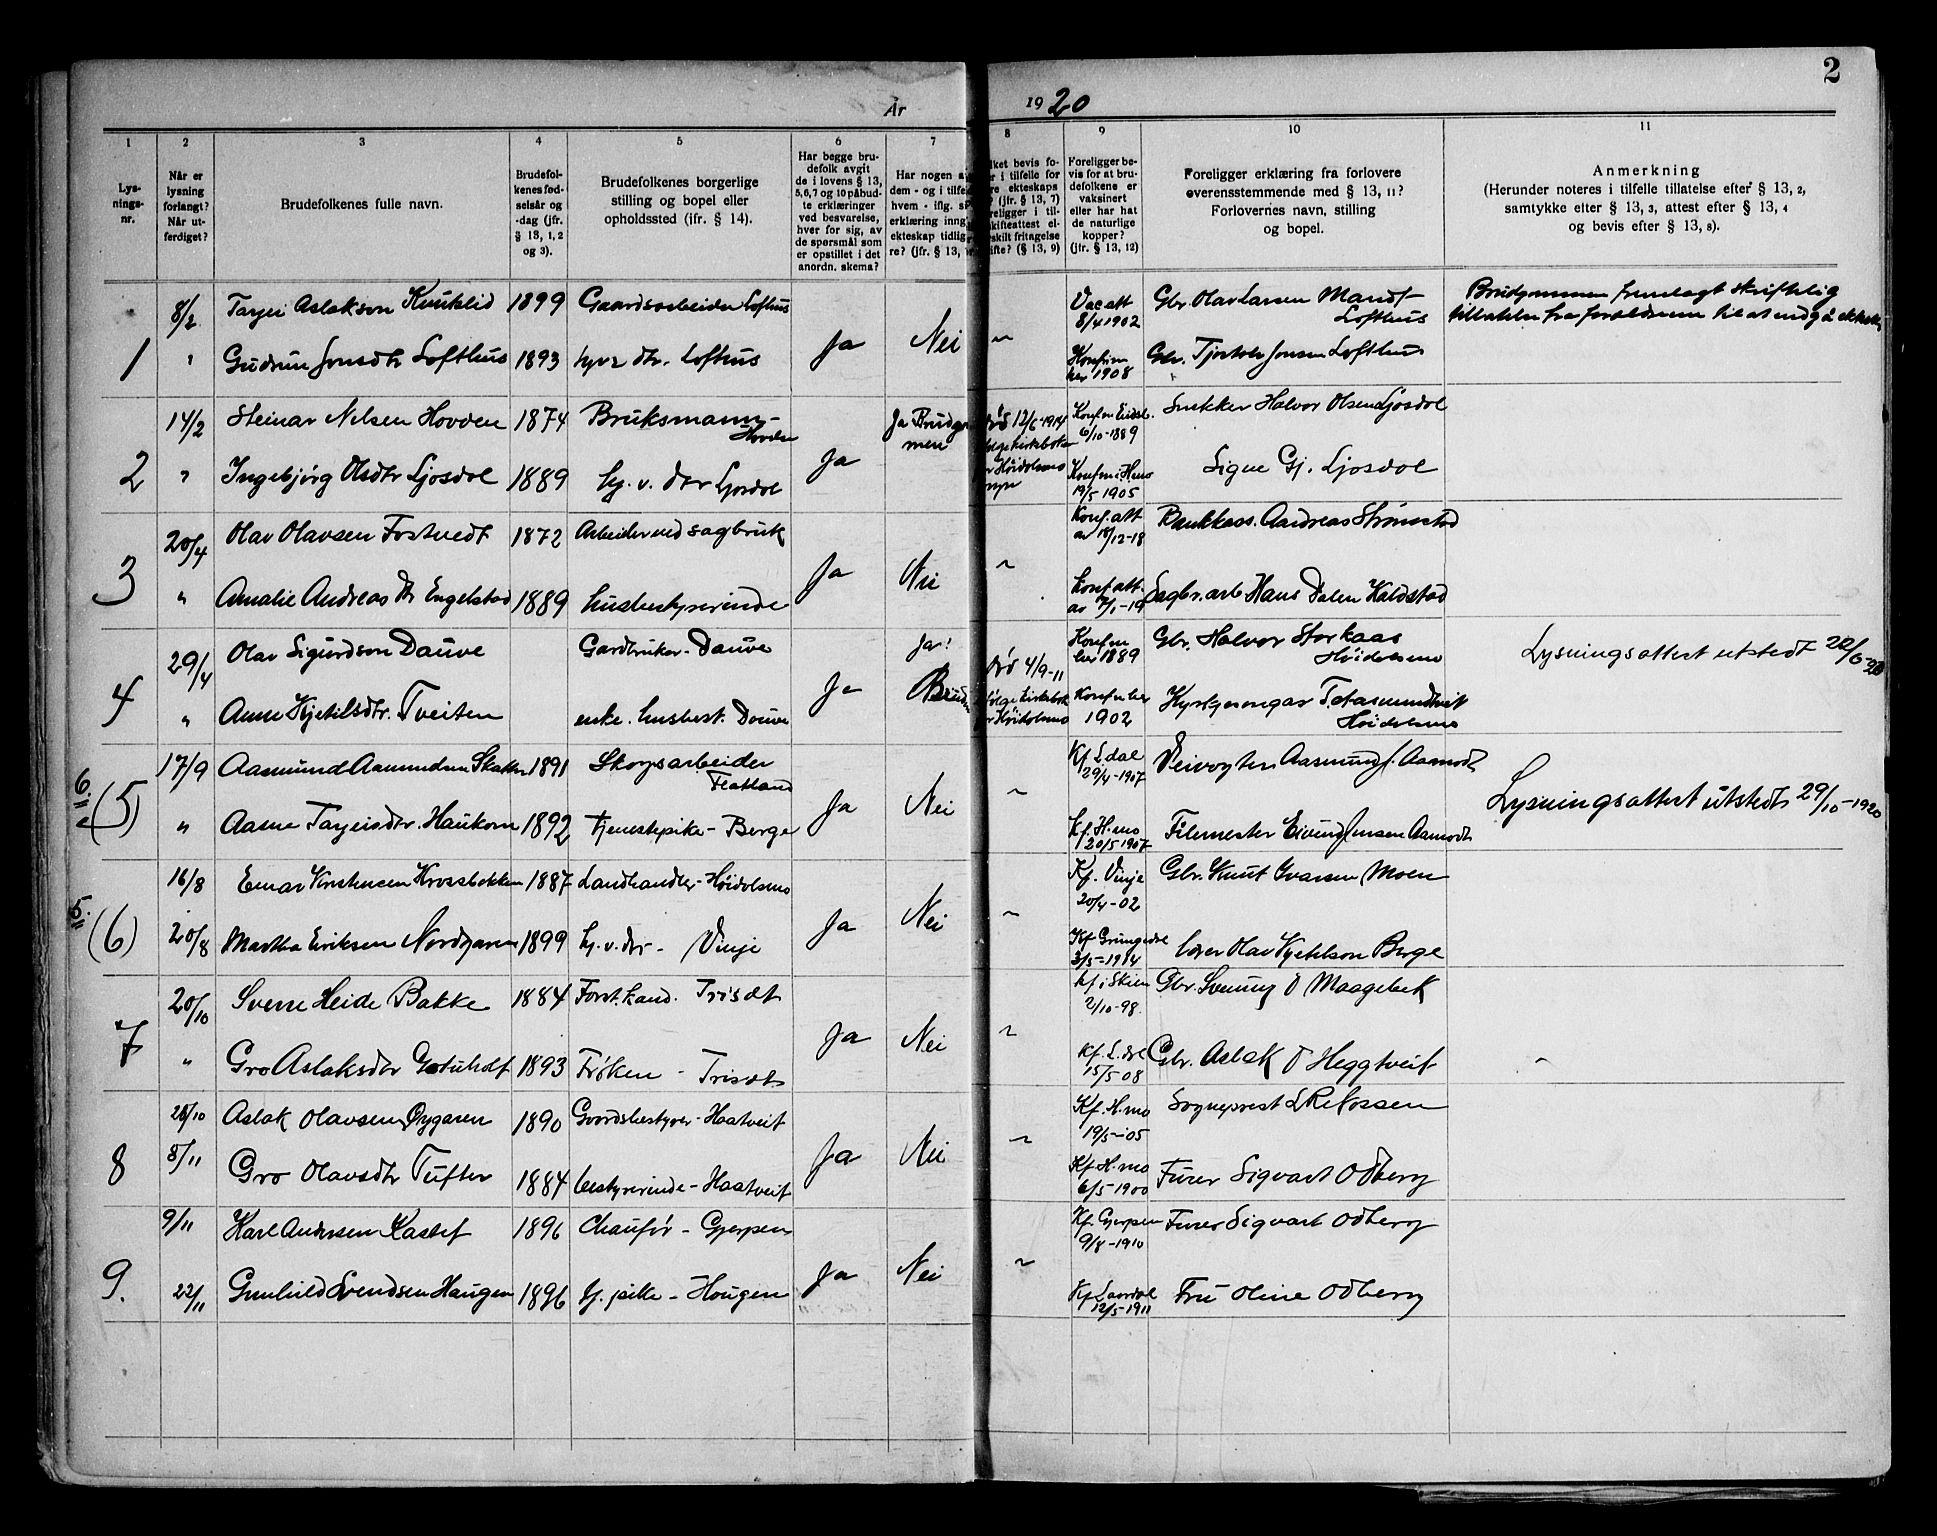 2
År 1920
1 2 3 4 5 6 7 8 9 10 11
Lys-
nings-
nr.
Når er
lysning
forlangt?
Når ut-
ferdiget?
Brudefolkenes fulle navn.
Brudefol-
kenes fød-
selsår og
-dag (jfr.
§ 13, 1, 2
og 3).
Brudefolkenes borgerlige
stilling og bopel eller
opholdssted (ifr. § 14).
Har begge bru-
defolk avgit
de i lovens § 13,
5, 6, 7 og 10 påbud-
te erklæringer
ved besvarelse,
hver for sig, av
de spørsmål som
er opstillet i det
anordn. skema?
Har nogen a
dem - og i tilfe
hvem - iflg. s
erklæring inng
ekteskap tidlig
re? (jfr. § 13,
lket bevis fo-
r i tilfelle for
re ekteskaps
? (jfr. § 13, 7)
religger i til-
skifteattest el-
skilt fritagelse
ifte? (§ 13, 9)
Foreligger be-
vis for at bru-
defolkene er
vaksinert
eller har hat
de naturlige
kopper?
(jfr. § 13, 12)
Foreligger erklæring fra forlovere
overensstemmende med § 13, 11?
Forlovernes navn, stilling
og bopel.
Anmerkning
(Herunder noteres i tilfelle tillatelse efter § 13, 2,
samtykke efter § 13, 3, attest efter § 13, 4
og bevis efter § 13, 8).
8/2 Tarjei Aslakson Knutslid 1899 Gaardsarbeider Lofthus Vac att 8/4 1902 Gbr. Olav Larsen Mandt Lofthus Brudgommen fremlagt skriftelig
tillatelse fra foreldrene til at indgå ektesk
1 " Gudrun Jonsdtr Lofthus 1893 dtr. Lofthus Ja Nei ~ 1908 Gbr. Tjostolv Jonsen Lofthus
14/2 Steinar Nilsen Hovden 1874 Bruksmann - Hovden Ja Brudgo
men død 12/6-1914 6/10-1889 Snekker Halvor Olsen Ljosdal
2 " Ingebjørg Olsdtr Ljosdal 1889 hj. v. dtr Ljosdal Ja 19/5 1905 Signe Gj. Ljosdal
20/4 Olav Olavsen Fostvedt 1872 Arbeider ved sagbruk Konf. att av 18/12-18 Bankkass. Andreas Strømstad
3 " Amalie Andreas dtr Engelstad 1889 husbestyrerinde Ja Nei ~ konf. att. av 7/1-19 Sagbr. arb Hans Dalen Kaldstad
29/4 Olav Sigurdson Dauve Gardbruker - Dauve Ja! død 4/9-11 1889 Gbr. Halvor Storkaas Høidalsmo Lysningsattest utstedt 22/6-20
4 " Anne Kjetilsdtr. Tveiten enke. husbest. Dauve Ja 1902 Høidalsmo
6. 17/9 Aasmund Aamundsen 1891 Skogsarbeider Flatland Kf. L.dal 29/4-1907 Veivogter Aasmund J. Aamodt
(5) " Aasne Tarjeisdtr. Haukom 1892 Tjenestepike - Berge Ja Nei ~ Kf. H.mo 20/5 1907 Filemester Eivind Jensen Aamodt Lysningsattest utstedt 29/10-1920
5. 16/8 Einar Kristensen Krossbakken 1887 Landhandler - Høidalsmo Kf. Vinje 20/4-02 Gbr. Knut Ivarsen Moen
(6) 20/8 Martha Eriksen Nordgaren 1899 hj. v. dtr - Vinje Ja Nei ~ Kf Grungedal 3/5-1914 Olav Kjetilson Berge
20/10 Sverre Heide Bakke 1884 Forst. kand. Trisæt kf i Skien 2/10-98. Gbr. Sveinung O Maagebek
7 " Gro Aslaksdtr Gotuholt 1893 Frøken - Trisæt Ja Nei ~ Kf. L.dal 15/5-08 Gbr. Aslak O Heggtveit
28/10 Aslak Olavsen Øygaren 1890 Gardsbestyrer - Haatveit Kf. H.mo 19/5-05 Sogneprest
8 8/11 Gro Olavsdtr Tufter 1884 bestyrerinde - Haatveit Ja Nei ~ Kf. H.mo 6/5-1900 Furer Sigvart Odberg
9/11 Karl Andersen Kastet 1896 Chaufør - Gjerpen Kf. Gjerpen 9/8-1910 Furer Sigvart Odberg
9. 22/11 Gunhild Svendsen Haugen 1896 hj. pike - Haugen Ja Nei ~ Kf Laardal 12/5-1911 Fru Oline Odberg